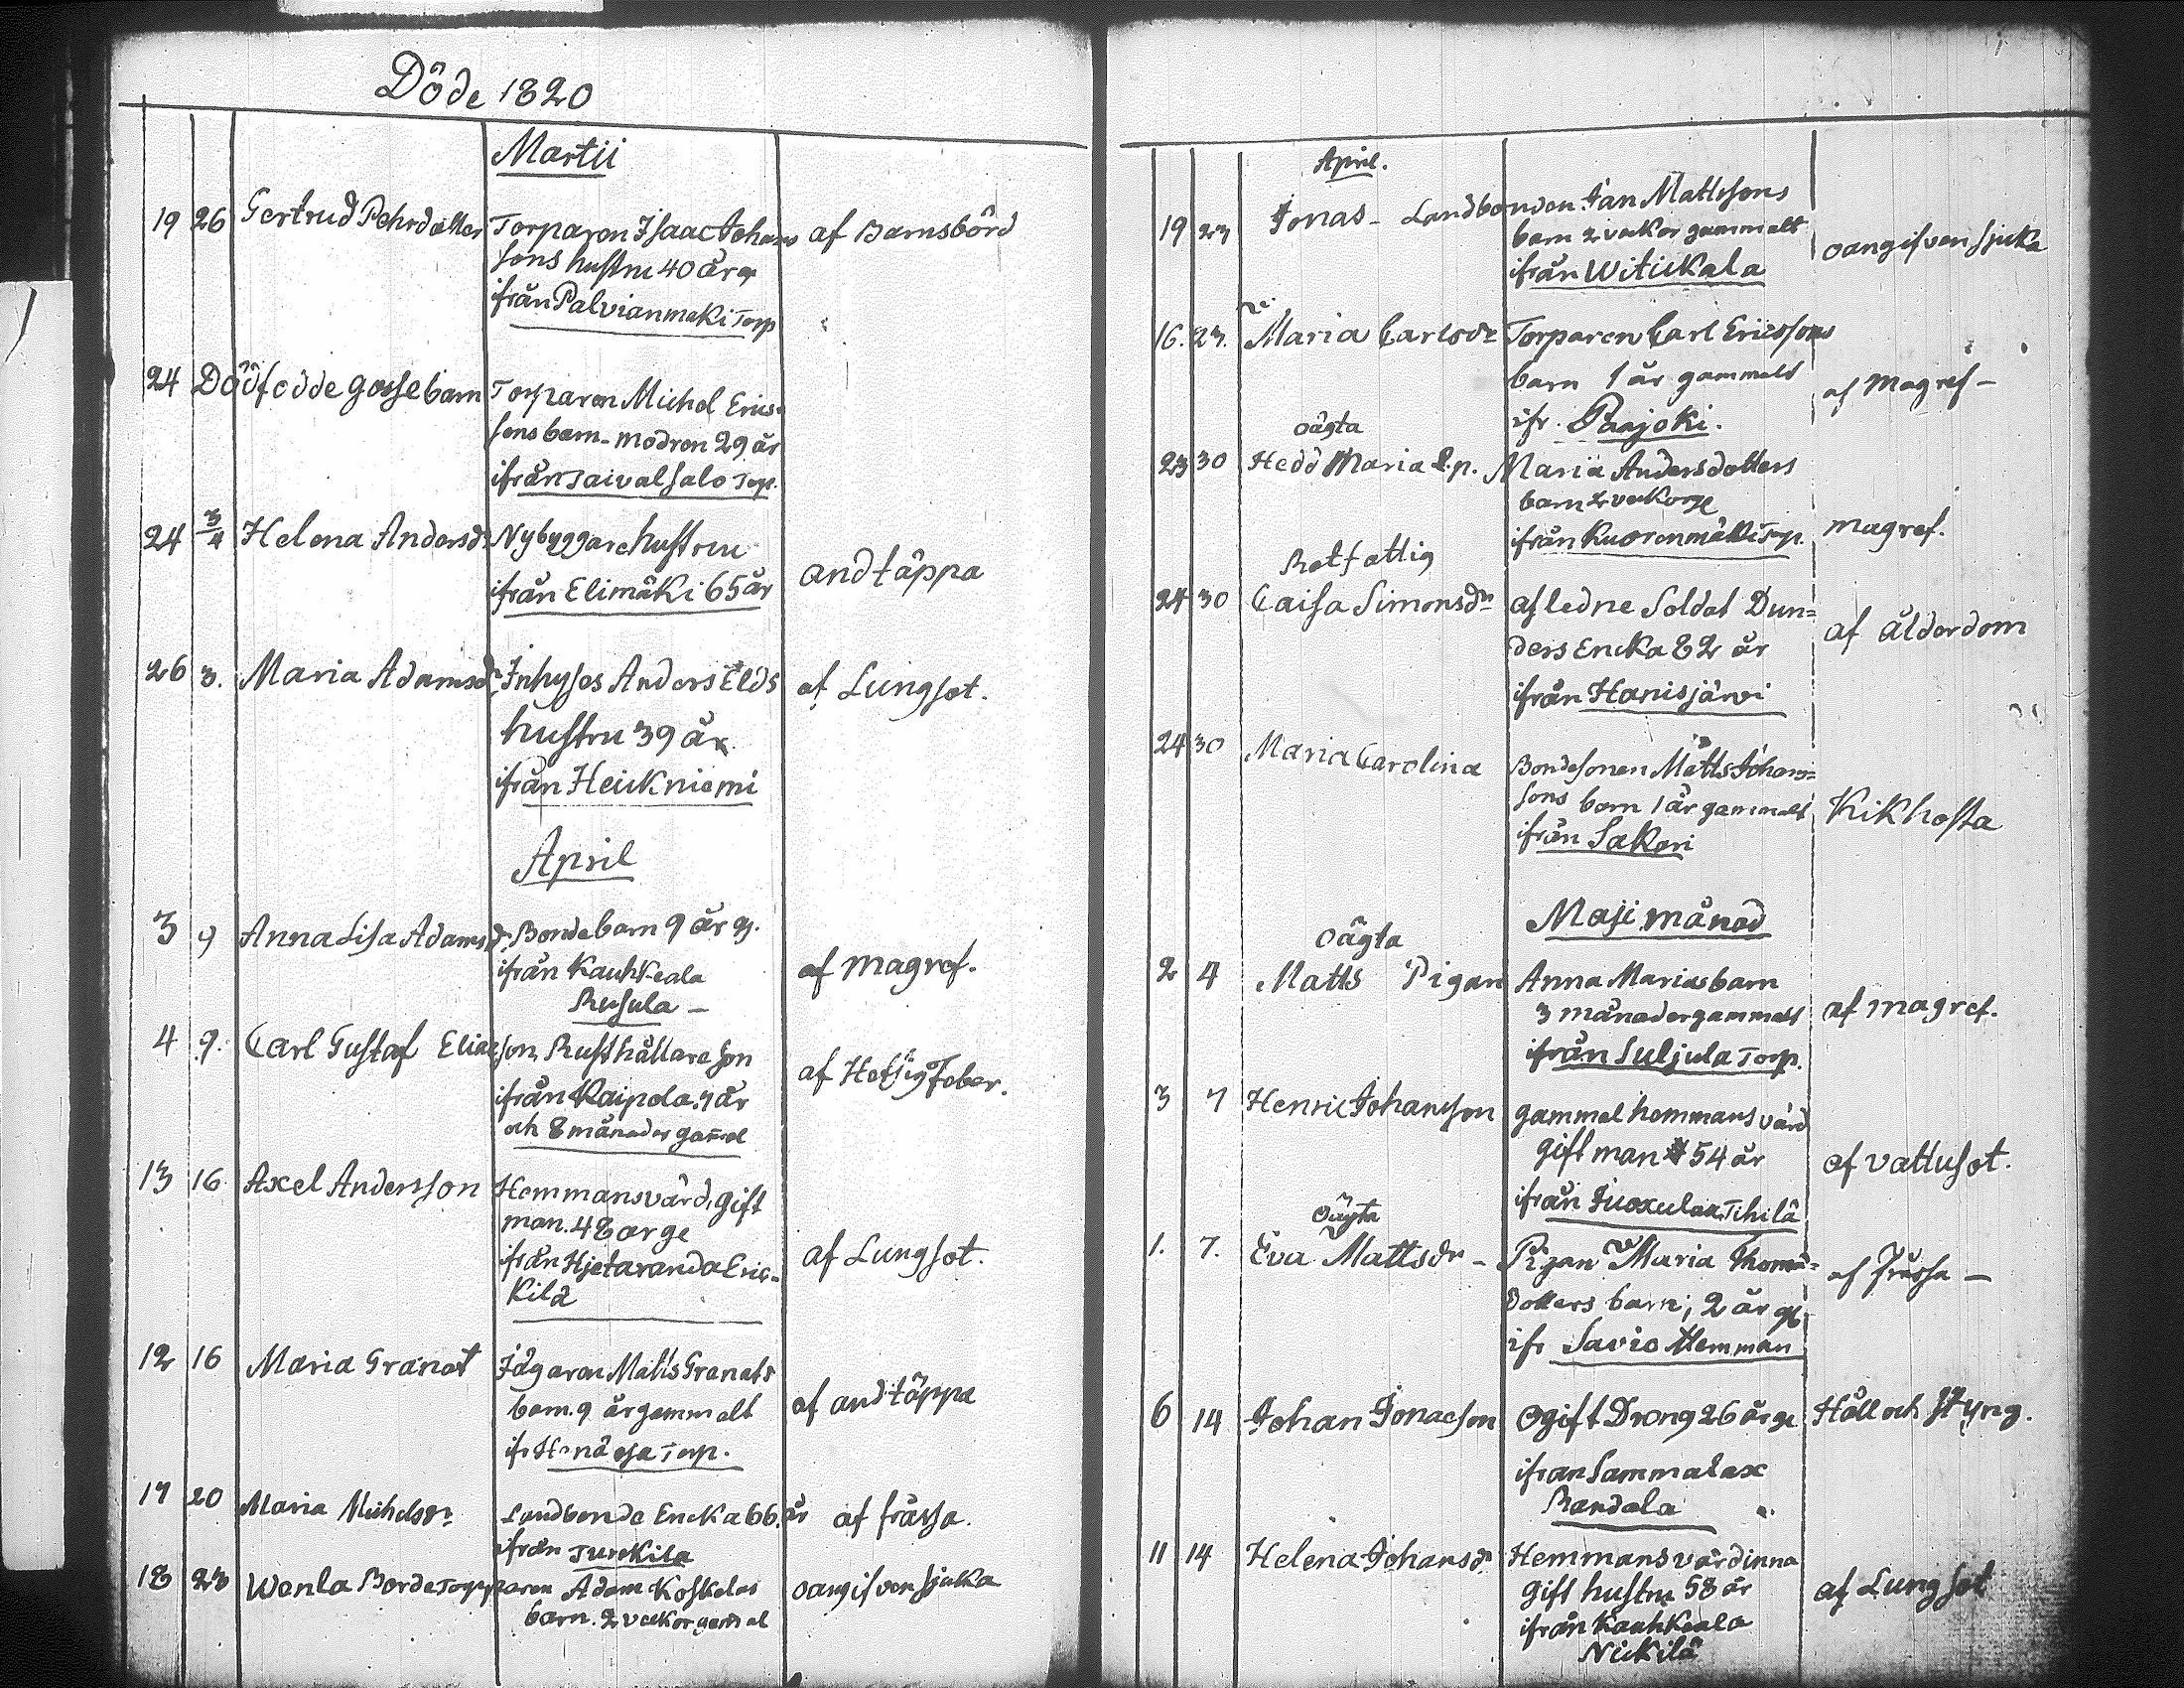 Döde 1820
Martii
19 26 Gertrud Pehrdotter Torparen Isaac Johans af Barnsbörd
sons hustru 40 år g
ifrån Palvianmaki Torp
24 Dödfödde gossebarn Torparen Michel Erics
sons barn - modren 29 år
ifrån Taivalsalo Torp.
24 3/4 Helena Andersdr Nybyggare hustru andtäppa
ifrån Elimäki 65 år
26 3. Maria Adamsdr Inhyses Anders Elds af Lungsot.
hustru 39 år
ifrån Heickniemi
April
3 9 Anna Lisa Adamsdr Bondebarn 9 år g. af magref.
ifrån Kauhkeala
Rusula -
4 9. Carl Gustaf Eliaeson Rusthållare son af Hetsig Feber.
ifrån Kaipola. 7 år
och 8 månader gamel
13 16 Axel Andersson Hemmansvärd, gift af Lungsot.
man. 48 år ge
ifrån Hjetaranda Eric-
kilä
12 16 Maria Granat Jägaren Matts Granats af andtäppa
barn. 9 år gammalt
ifr Torp.
17 20 Maria Michelsdr Landbonde Encka 66 år af frässa.
ifrån Turckila
18 23 Wenla Borde Torpparen Adam Koskelas oangifven sjuka
barn. 2 veckor gamal
April.
19 23 Jonas - Landbonden Jan Mattssons oangifven sjuka
barn 2 veckor gammalt
ifrån Witickala
16. 23. Maria Carlsdr Torparen Carl Ericssons af Magref -
barn 1 år gammalt
ifr. Paajoki.
oägta
23 30 Hedd Maria Maria Andersdotters magref.
barn 2 veckor ge
ifrån Kuorenmäki Torp.
Rotfattig
24 30 Caisa Simonsdr afledne Soldat Dun= af ålderdom
ders Encka 82 år
ifrån Hanisjärvi
24 30 Maria Carolina Bondesonen Matts Johans= Kikhosta
sons barn 1 år gammalt
ifrån Sakari
Maji månad
oägta
2 4 Matts Pigan Anna Marias barn af magref.
3 månader gammalt
ifrån Suljula Torp.
3 7 Henric Johansson gammel hemmans värd af vattusot.
gift man 54 år
ifrån Tihilä
Oägta
1. 7. Eva Mattsdr - Pigan Maria Thoma= af frässa -
dotters barn; 2 år g
ifr Savio Hemman
6 14 Johan Jonaeson Ogift Dräng 26 år ge Håll och styng.
ifran Sammalax
Randala
11 14 Helena Johansdr Hemmansvärdinna af Lungsot
gift hustru 58 år
ifrån Kauhkeala
Nickilä